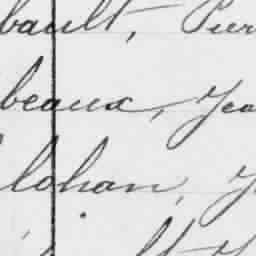 bault, Pier
beaux, Jea
lohan, J